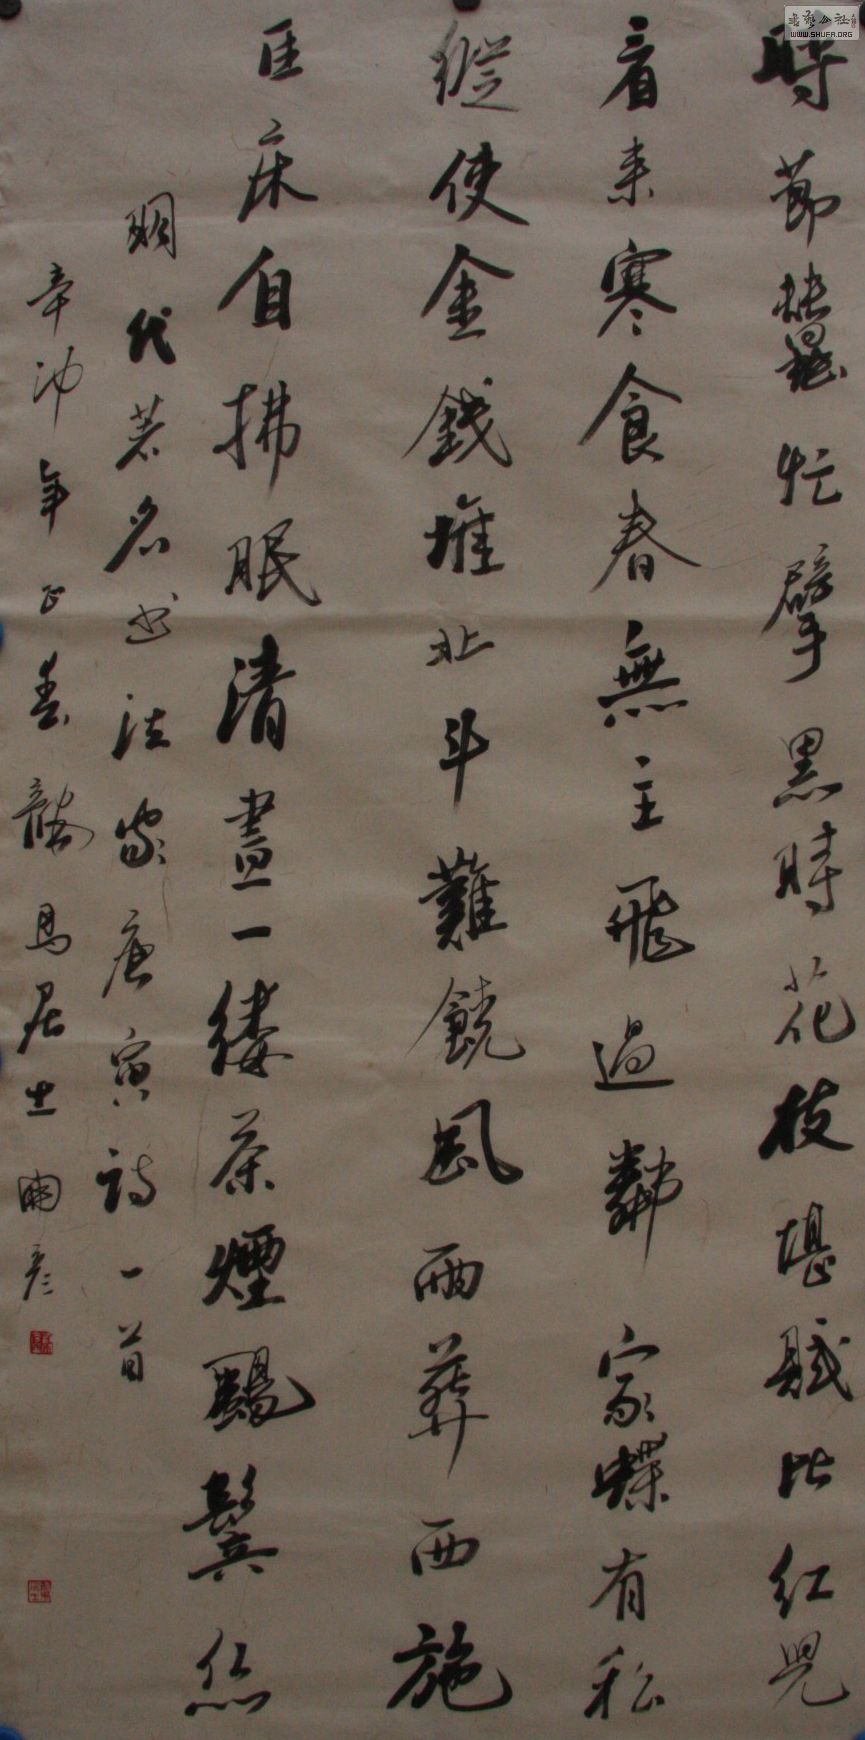 時節蠶忙擘黑時花枝堪賦比紅兒
看来寒食春無主飛過鄰家蝶有私
縱使金錢堆北斗難饒風雨葬西施
匡床自拂眠清晝一縷茶煙颺鬢絲
明代著名书法家唐寅詩一首
辛卯年正春龍馬居士國彦
書藝公社
WWW.SHUFA.ORG